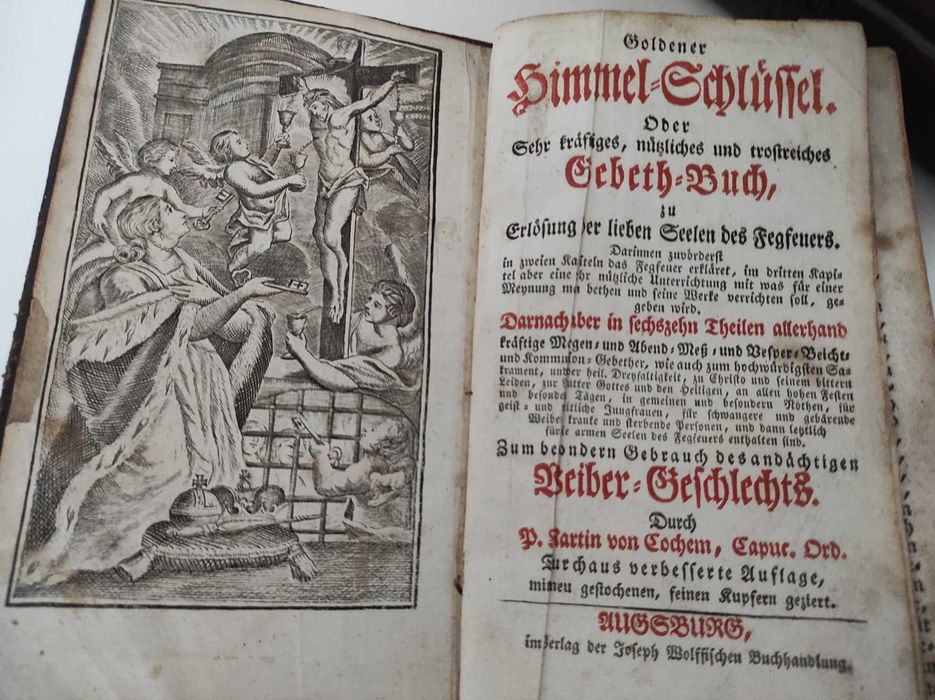 Goldener
Himmel-Schlüssel.
Oder
Sehr kräftiges, nützliches und trostreiches
Gebeth-Buch,
zu
Erlösung er lieben Seelen des Fegfeuers.
Darinnen zuvörderst
in zweien Kapiteln das Fegfeuer erkläret, im dritten Kapi-
tel aber eine hr nützliche Unterrichtung mit was für einer
Meynung ma bethen und seine Werke verrichten soll, ge-
geben wird.
Darnach aber in sechszehn Theilen allerhand
kräftige Megen- und Abend-Meß- und Vesper-Beicht-
und Kommunion-Gebether, wie auch zum hochwürdigsten Sa-
krament, und er heil. Dreyfaltigkeit, zu Christo und seinem bittern
Leiden, zur utter Gottes und den Heiligen, an allen hohen Festen
und besonde Tägen, in gemeinen und besondern Nöthen, für
geist- und eltliche Jungfrauen, für schwangere und gebärende
Weibe kranke und sterbende Personen, und dann letztlich
für armen Seelen des Fegfeuers enthalten sind.
Zum beondern Gebrauch des andächtigen
Weiber-Geschlechts.
Durch
P. artin von Cochem, Capuc. Ord.
urchaus verbesserte Auflage,
mi neu gestochenen, feinen Kupfern geziert.
AUGSBURG,
im erlag der Joseph Wolffischen Buchhandlung.